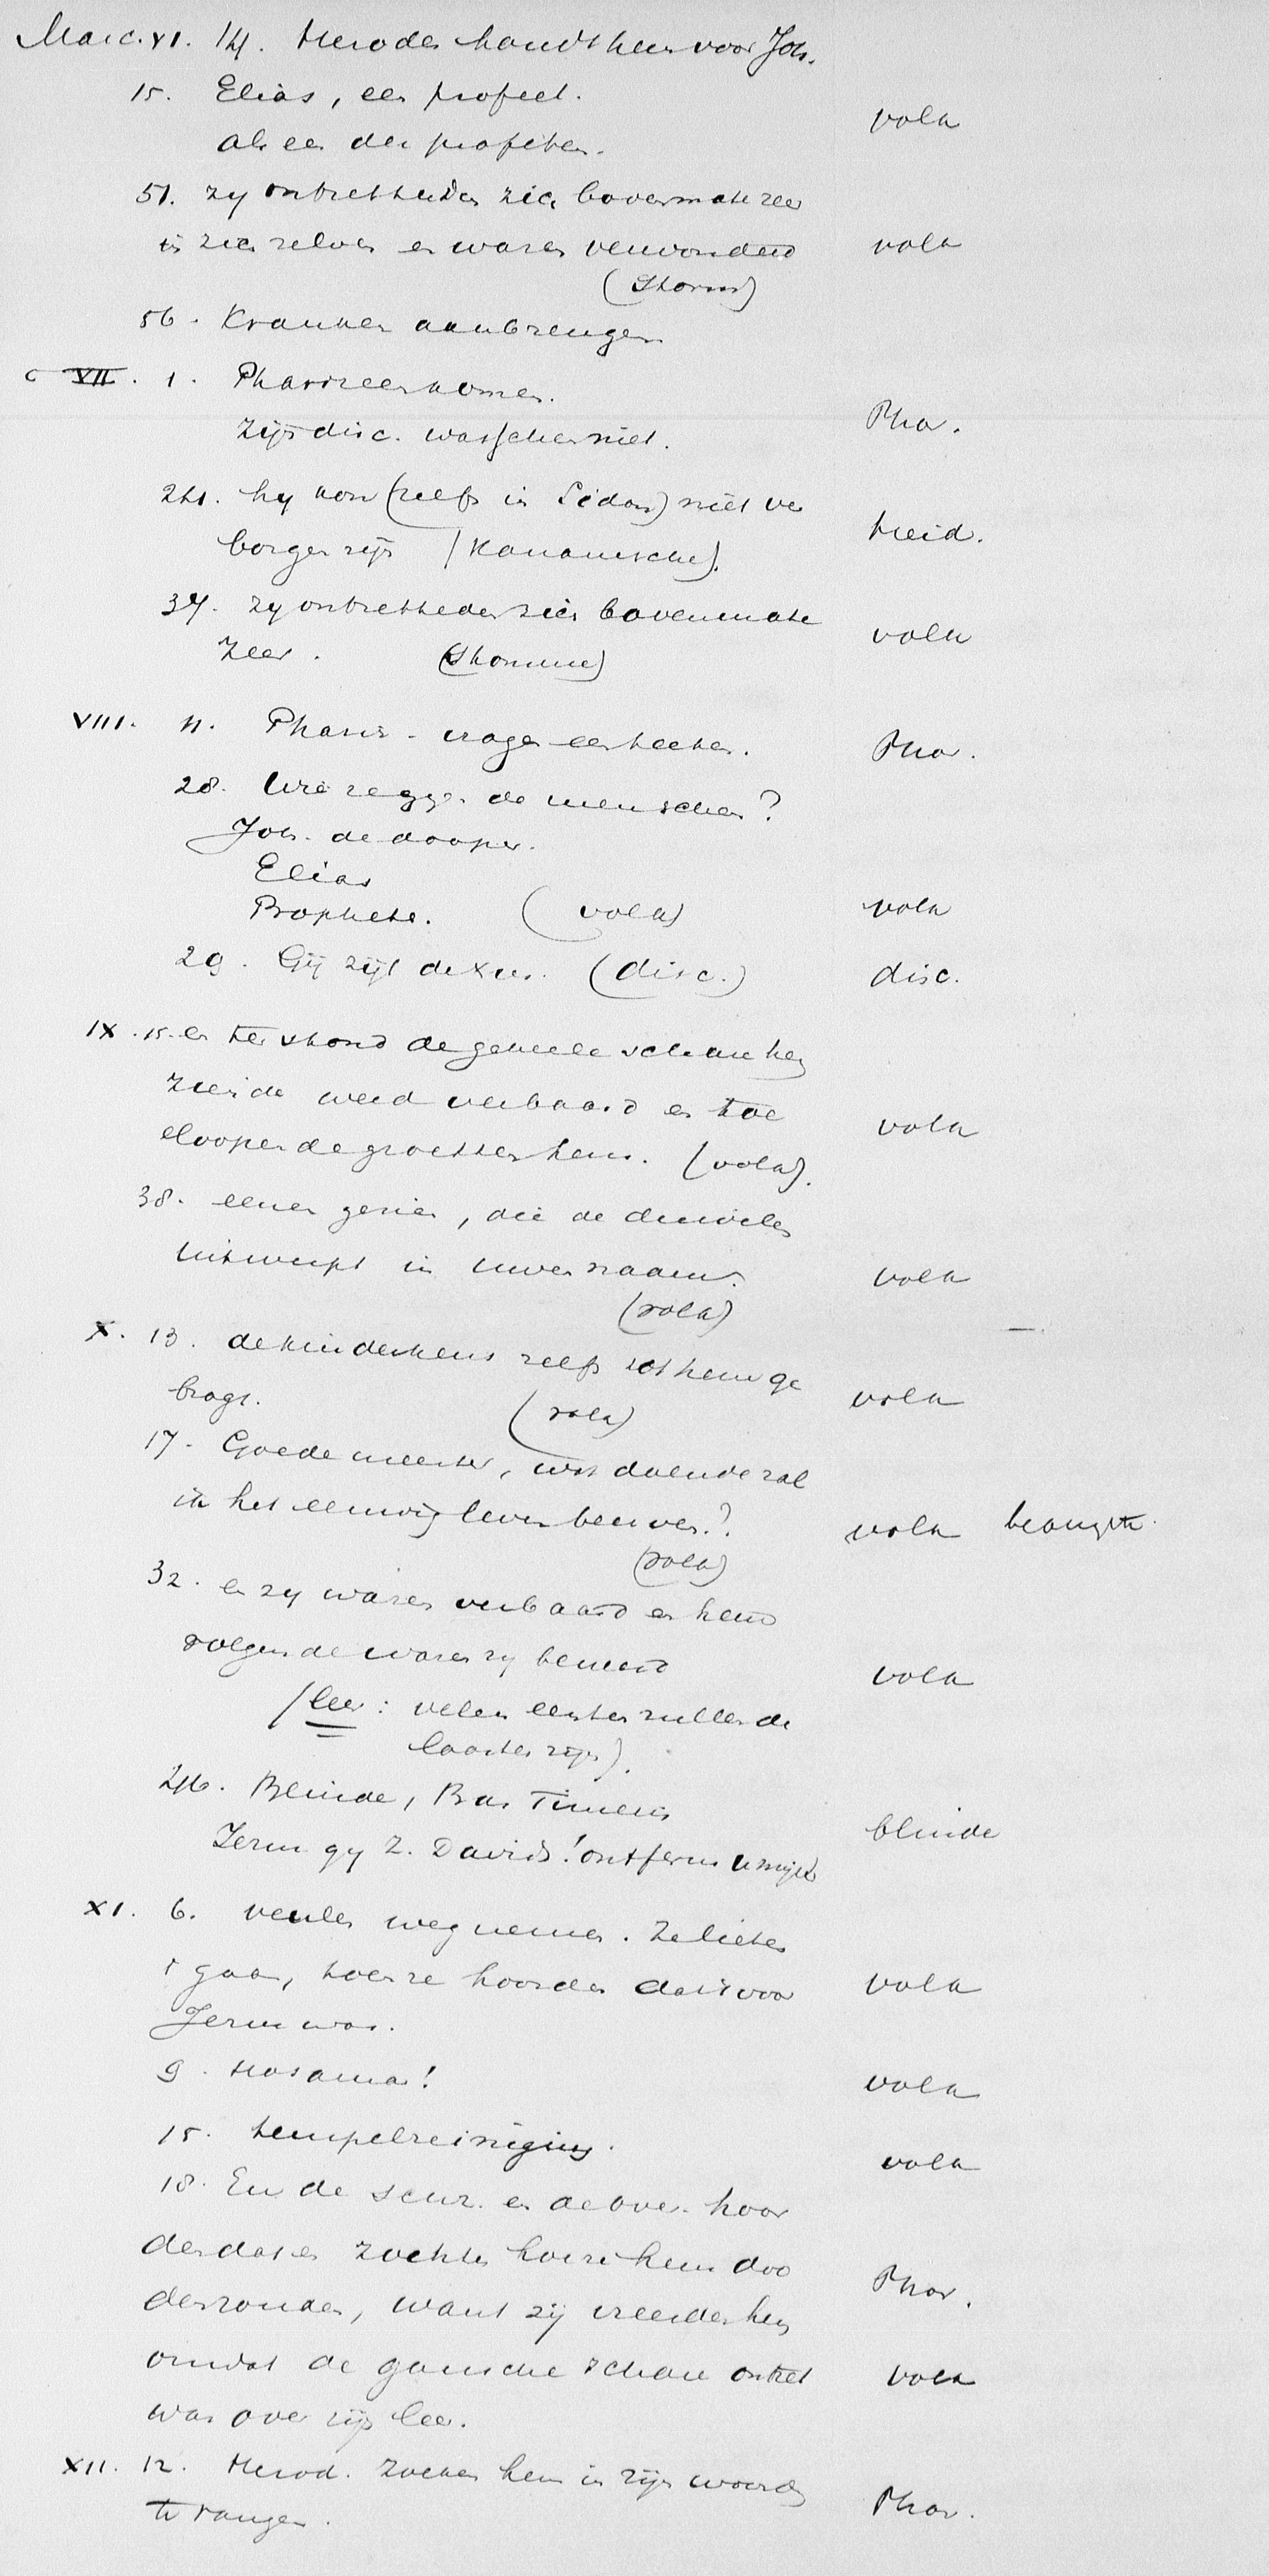 Marc. VI. 14. Herodes houdt hem voor Joh.
15. Elias, een profeet. volk
als een der profeten.
51. zy ontzetteden zich bovenmate zeer
in zich zelven en waren verwonderd volk
(Storm)
56. Kranken aanbrengen
c VII. 1. Pharizeen komen. Phar.
Zijn disc. wasschen niet.
24. hy kon (zelfs in Sidon) niet ver heid.
borgen zijn (Kananesche).
37. zy ontzetteden zich bovenmate volk
zeer. (Stomme)
VIII. 11. Phariz. vragen een teeken. Phar.
28. Wie zeggen de menschen?
Joh. de dooper.
Elias
Prophete. (volk) volk
29. Gij zijt de Xus. (disc.) disc.
IX. 15. en terstond de geheele schare hem
ziende werd verbaasd en toe volk
eloopende groetten hem. (volk).
38. eenen gezien, die de duivelen
uitwerpt in uwen naam. volk
(volk)
X. 13. de kinderkens zelfs tot hem ge volk
bragt. (volk)
17. Goede meester, wat doende zal
ik het eeuwig leven beerven? volk
(volk)
32. en zy waren verbaasd en hem
volgende waren zy bevreesd volk
(leer: velen eersten zullen de
laatsten zijn).
46. Blinde, Bar Timeus blinde
Jezus gy Z. Davids! ontferm U mijner
XI. 6. veulen wegnemen. Ze lieten
't gaan, toen ze hoorden dat 't voor volk
Jezus was.
9. Hosanna! volk
15. tempelreiniging. volk
18. En de schr. en de over. hoor
den dat en zochten hoe ze hem doo Phar.
den zouden, want zij vreesden hem
omdat de gansche schare ontzet volk
was over zijn leer.
XII. 12. Herod. zoeken hem in zijn woorden Phar.
te vangen.